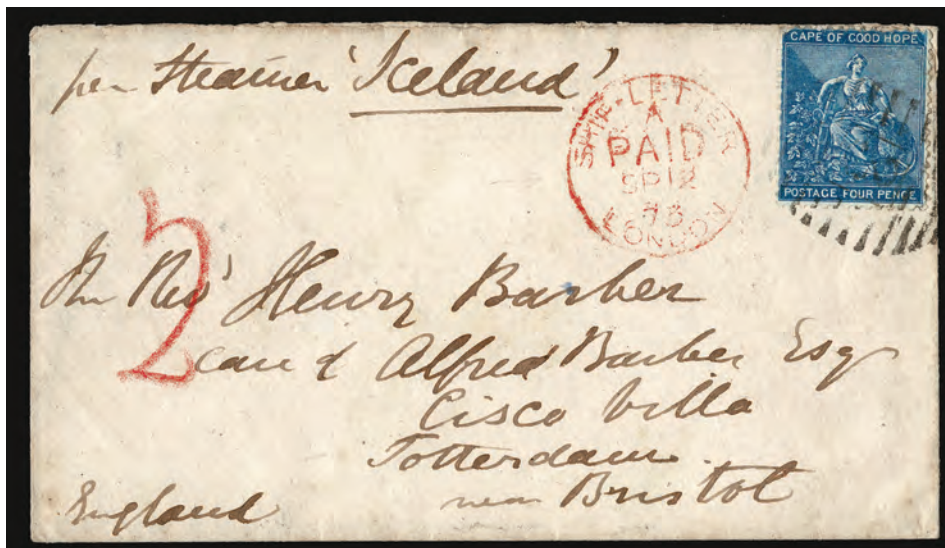 per Steamer 'Iceland'
CAPE OF GOOD HOPE
POSTAGE FOUR PENCE
SHIP-LETTER
A
PAID
SP 12
73
LONDON
2
The Revd Henry Barber
care of Alfred Barber Esq
Cisco Villa
Totterdown
near Bristol
England